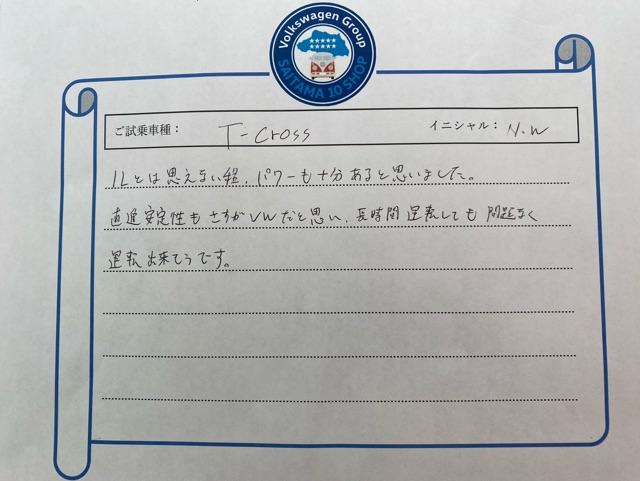 Volkswagen Group
SAITAMA 10 SHOP
ご試乗車種： T-Cross イニシャル： N.W
1Lとは思えない程、パワーも十分あると思いました。
直進安定性もさすがVWだと思い、長時間運転しても問題なく
運転出来そうです。